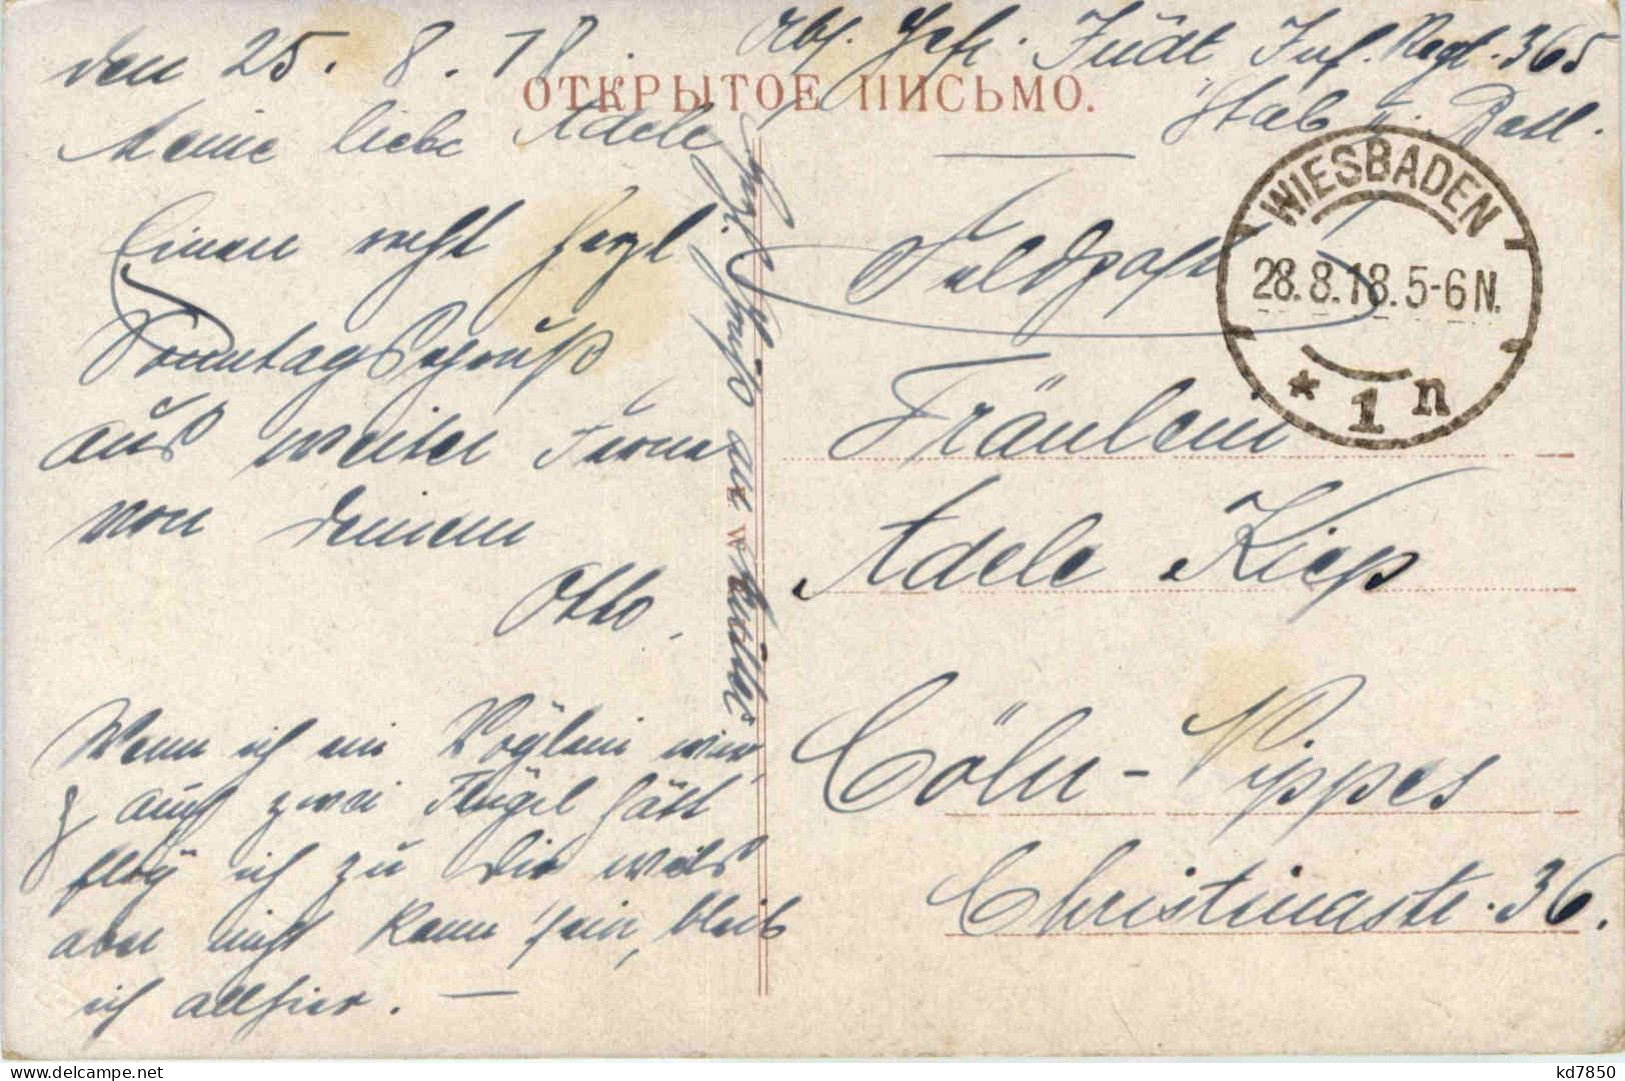 den 25. 8. 18.
Meine liebe Adele
Einen recht herzl
Sonntagsgruß
aus weiter Ferne
von Deinem
Otto.
Wenn ich ein Vöglein wär
u auch zwei Flügel hätt
flög ich zu Dir weils
aber nicht kann sein, bleib
ich allhier. —
herzl. Gruß an
ОТКРЫТОЕ ПИСЬМО.
Abs. Gefr. Jüdt Inf. Regt. 365
Stab II. Batl.
Feldpost
WIESBADEN
28.8.18.5-6N.
* 1 n
Fräulein
Adele Kiep
Cöln-Nippes
Christinastr. 36.
kd7850